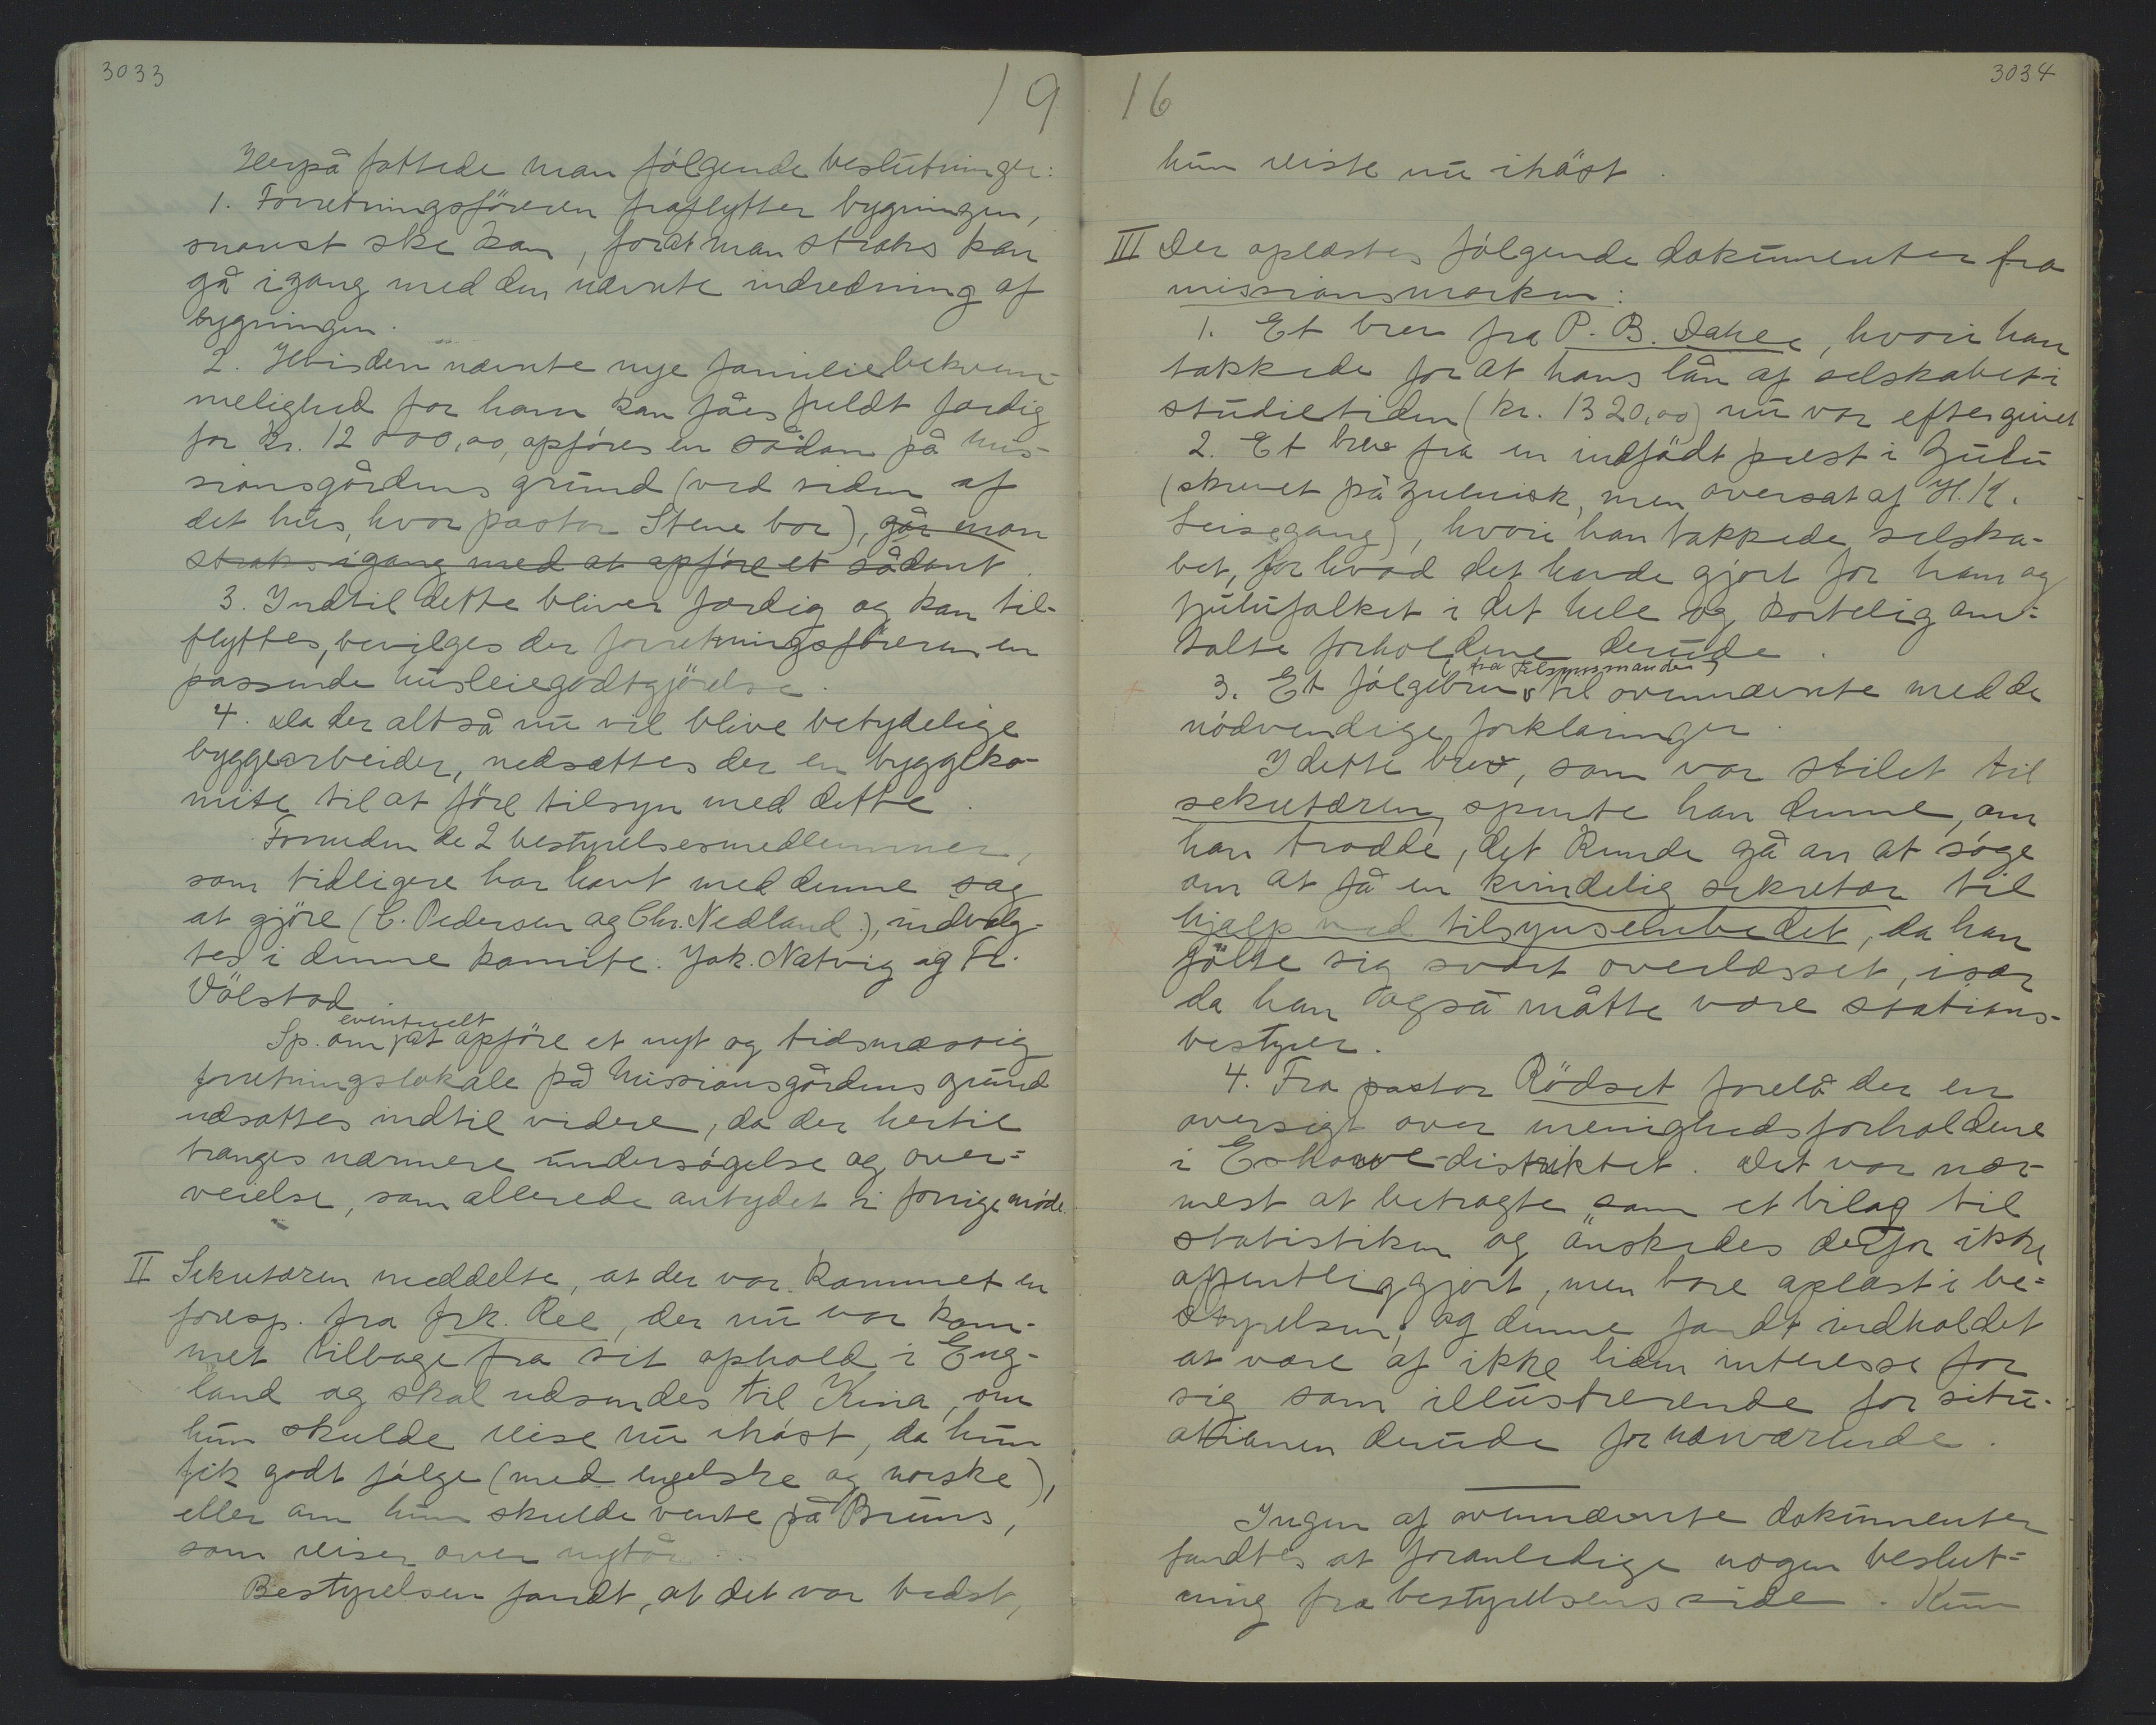 3033
19
Herpå fattede man følgende beslutninger:
1. Forretningsføreren fraflytter bygningen,
snarest ske kan, forat man straks kan
gå igang med den nævnte indredning af
bygningen.
2. Hvis den nævnte nye familiebekvem-
melighed for ham kan fåes fuldt færdig
for kr. 12 000,00, opføres en sådan på mis-
sionsgårdens grund (ved siden af
det hus, hvor pastor Stene bor), går man
straks igang med at opføre et sådant.
3. Indtil dette bliver færdig og kan til-
flyttes, bevilges der forretningsføreren en
passende husleiegodtgjørelse.
4. Da der altså nu vil blive betydelige
byggearbeider, nedsættes der en byggeko-
mite til at føre tilsyn med dette.
Foruden de 2 bestyrelsesmedlemmer,
som tidligere har havt med denne sag
at gjøre (C. Pedersen og Chr. Nedland), indvalg-
tes i denne komite: Jak. Natvig og Fr.
Vølstad.
eventuelt
Sp. om at opføre et nyt og tidsmæssig
forretningslokale på Missionsgårdens grund
udsattes indtil videre, da der hertil
trænges nærmere undersøgelse og over-
veielse, som allerede antydet i forrige møde.
II Sekretæren meddelte, at der var kommet en
foresp. fra frk. Ree, der nu var kom-
met tilbage fra sit ophold i Eng-
land og skal udsendes til Kina, om
hun skulde reise nu ihøst, da hun
fik godt følge (med engelske og norske),
eller om hun skulde vente på Bruns,
som reiser over nytår.
Bestyrelsen fandt, at det var bedst,
16
3034
hun reiste nu ihøst.
III Der oplæstes følgende dokumenter fra
missionsmarken:
1. Et brev fra P. B. Dahle, hvori han
takkede for at hans lån af selskabet i
studietiden (kr. 1320,00) nu var eftergivet
2. Et brev fra en indfødt prest i Zulu
(skrevet på zuluisk, men oversat af H. K.
Leisegang), hvori han takkede selska-
bet, for hvad det havde gjort for ham og
zulufolket i det hele og kortelig om-
talte forholdene derude.
(fra tilsynsmanden)
3. Et følgebrev til ovennævnte med de
nødvendige forklaringer.
I dette brev, som var stilet til
sekretæren, spurte han denne, om
han trodde, det kunde gå an at søge
om at få en kvindelig sekretær til
hjælp ved tilsynsembedet, da han
følte sig svært overlæsset, især
da han også måtte være stations-
bestyrer.
4. Fra pastor Rødset forelå der en
oversigt over menighedsforholdene
i Eshowe-distriktet. Det var nær-
mest at betragte som et bilag til
statistiken og ønskedes derfor ikke
offentliggjort, men bare oplæst i be-
styrelsen; og denne fandt indholdet
at være af ikke liden interesse for
sig som illustrerende for situ-
ationen derude for nærværende.
Ingen af ovennævnte dokumenter
fandtes at foranledige nogen beslut-
ning fra bestyrelsens side. Kun